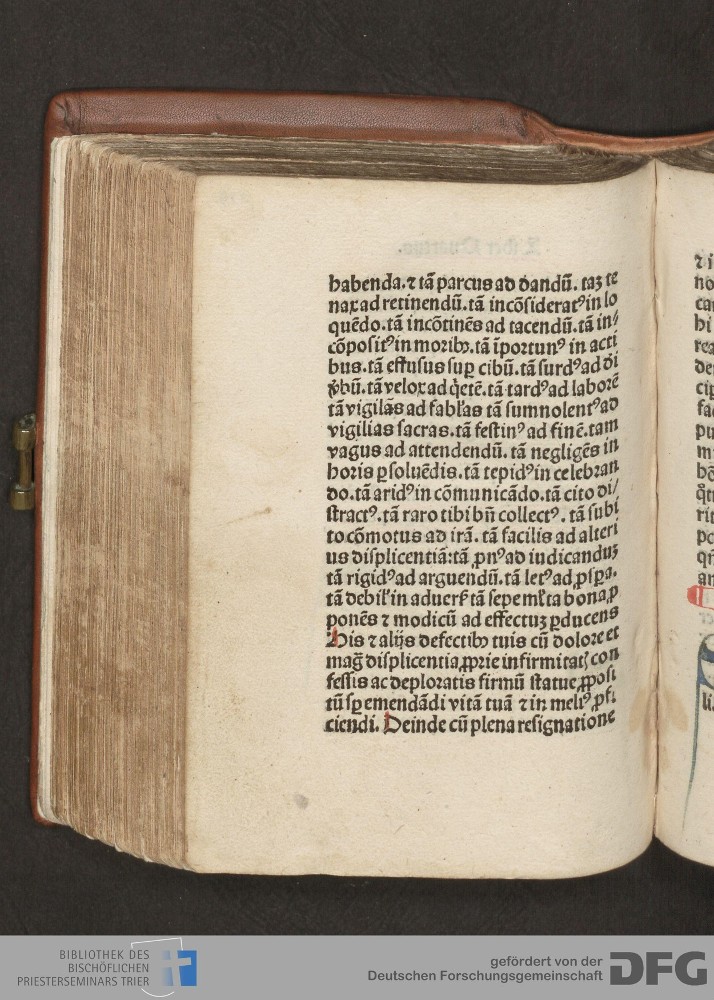 habenda. ⁊ tā parcus ad dandū. taꝫ te
nax ad retinendū. tā incōsideratꝰ in lo
quēdo. tā incōtinēs ad tacendū. tā in⸗
cōpositꝰ in moribꝫ. tā īportunꝰ in acti
bus. tā effusus suꝑ cibū. tā surdꝰ ad di
v̄bū. tā velox ad q̇etē. tā tardꝰ ad laborē
tā vigilās ad fabl'as tā sumnolentꝰ ad
vigilias sacras. tā festinꝰ ad finē. tam
vagus ad attendendū. tā negligēs in
horis ꝑsoluēdis. tā tepidꝰ in celebran
do. tā aridꝰ in cōmunicādo. tā cito di/
stractꝰ. tā raro tibi bn̄ collectꝰ. tā subi
to cōmotus ad irā. tā facilis ad alteri
us displicentiā: tā ꝓnꝰ ad iudicanduꝫ
tā rigidꝰ ad arguendū. tā letꝰ ad ꝓsꝑa.
tā debil' in aduerſ' tā sepe ml'ta bona ꝓ
ponēs ⁊ modicū ad effectuꝫ ꝑducens
His ⁊ alijs defectibꝫ tuis cū dolore et
mag̃ displicentia ꝓprie infirmitatꝭ con
fessis ac deploratis firmū statue ꝓposi
tū sꝑ emendādi vitā tuā ⁊ in meliꝰ ꝓfi
ciendi. Deinde cū plena resignatione
⁊ i
no
ca
hi
rea
de
fac
pu
m
rit
an
li.
BIBLIOTHEK DES
BISCHÖFLICHEN
PRIESTERSEMINARS TRIER
gefördert von der
Deutschen Forschungsgemeinschaft
DFG